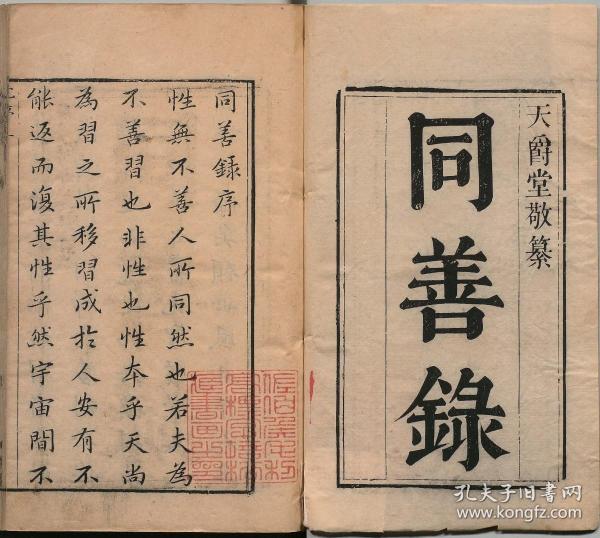 天爵堂敬纂
同善錄
同善錄序
性無不善人所同然也若夫為
不善習也非性也性本乎天尚
為習之所移習成於人安有不
能返而復其性乎然宇宙間不
孔夫子旧书网
www.kongfz.com